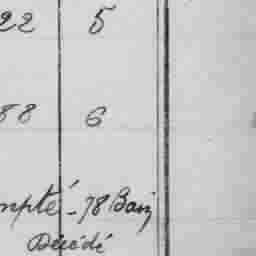 22 5
88 6
mpté - 78 Bas
Décédé